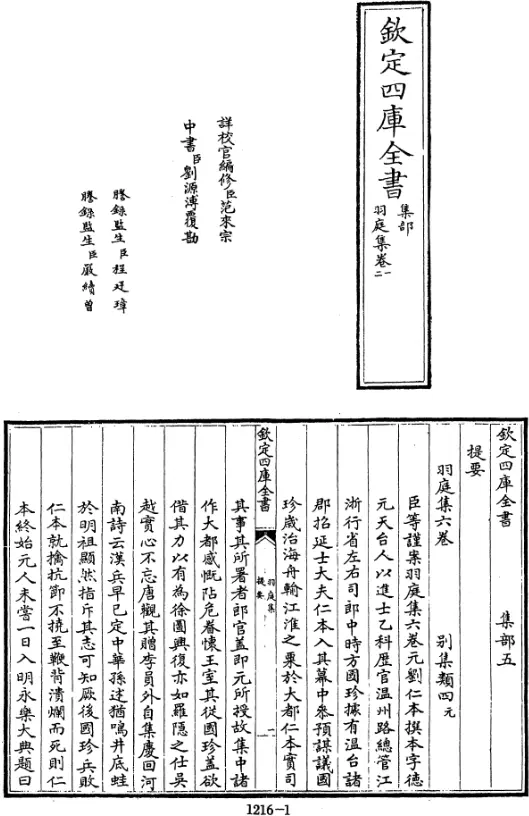 欽定四庫全書
集部
羽庭集卷一
二
詳校官編修臣范來宗
中書臣劉源溥覆勘
謄錄監生臣程廷璋
謄錄監生臣嚴續曾
欽定四庫全書
集部五
提要
羽庭集六卷
別集類四元
臣等謹案羽庭集六卷元劉仁本撰本字德
元天台人以進士乙科歷官溫州路總管江
浙行省左右司郎中時方國珍據有溫台諸
郡招延士大夫仁本入其幕中參預謀議國
珍歲治海舟輸江淮之粟於大都仁本實司
欽定四庫全書
羽庭集
提要
一
其事其所署者郎官蓋即元所授故集中諸
作大都感慨阽危眷懷王室其從國珍蓋欲
借其力以有為徐圖興復亦如羅隱之仕吳
越實心不忘唐觀其贈李員外自集慶回河
南詩云漢兵早已定中華孫述猶鳴井底蛙
於明祖顯然指斥其志可知厥後國珍兵敗
仁本就擒抗節不撓至鞭背潰爛而死則仁
本終始元人未嘗一日入明永樂大典題曰
1216-1